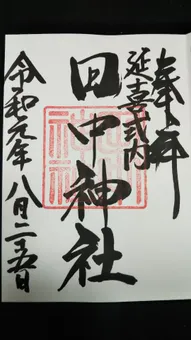 奉拝
延喜式内
田中神社
令和元年八月二十五日